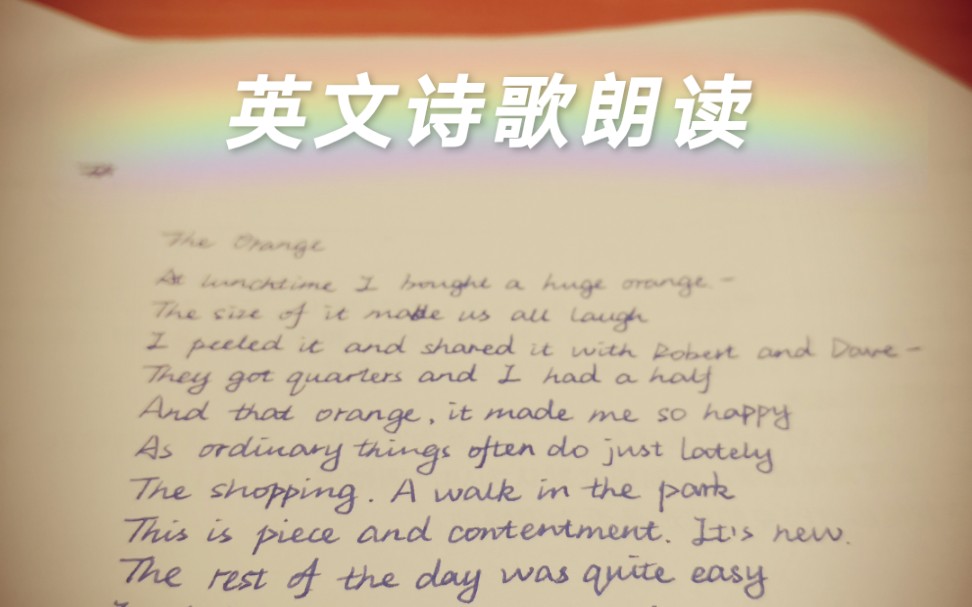 英文诗歌朗读
The Orange
At lunchtime I bought a huge orange -
The size of it made us all laugh
I peeled it and shared it with Robert and Dave -
They got quarters and I had a half
And that orange, it made me so happy
As ordinary things often do just lately
The shopping. A walk in the park
This is piece and contentment. It's new.
The rest of the day was quite easy